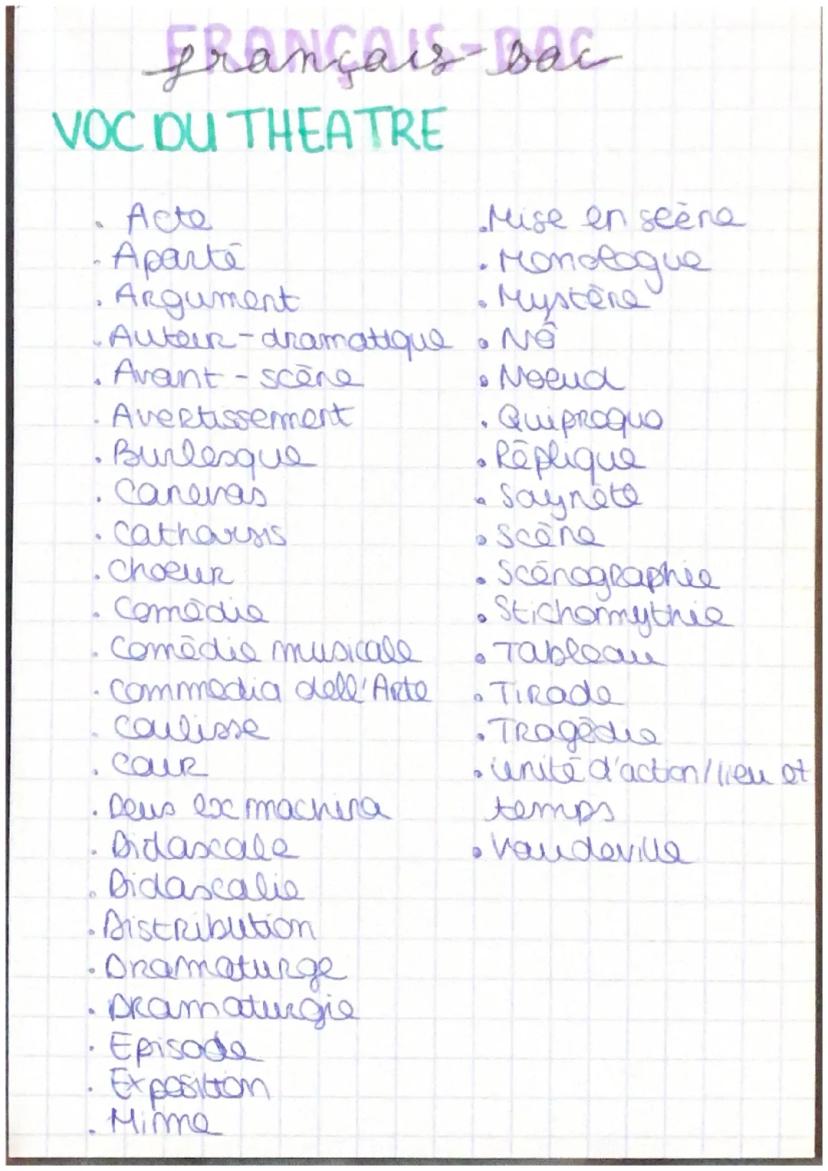 FRANÇAIS-BAC
français-bac
VOC DU THEATRE
. Acte
. Aparté
. Argument
. Auteur-dramatique
. Avant-scène
. Avertissement
. Burlesque
. Canevas
. Catharsis
. Choeur
. Comédie
. Comédie musicale
. Commedia dell'Arte
. Coulisse
. Cour
. Deus ex machina
. Didascale
. Didascalie
. Distribution
. Dramaturge
. Dramaturgie
. Episode
. Exposition
. Mime
. Mise en scène
. Monologue
. Mystère
. Nô
. Noeud
. Quiproquo
. Réplique
. Saynète
. Scène
. Scénographie
. Stichomythie
. Tableau
. Tirade
. Tragédie
. Unité d'action/lieu et
temps
. Vaudeville